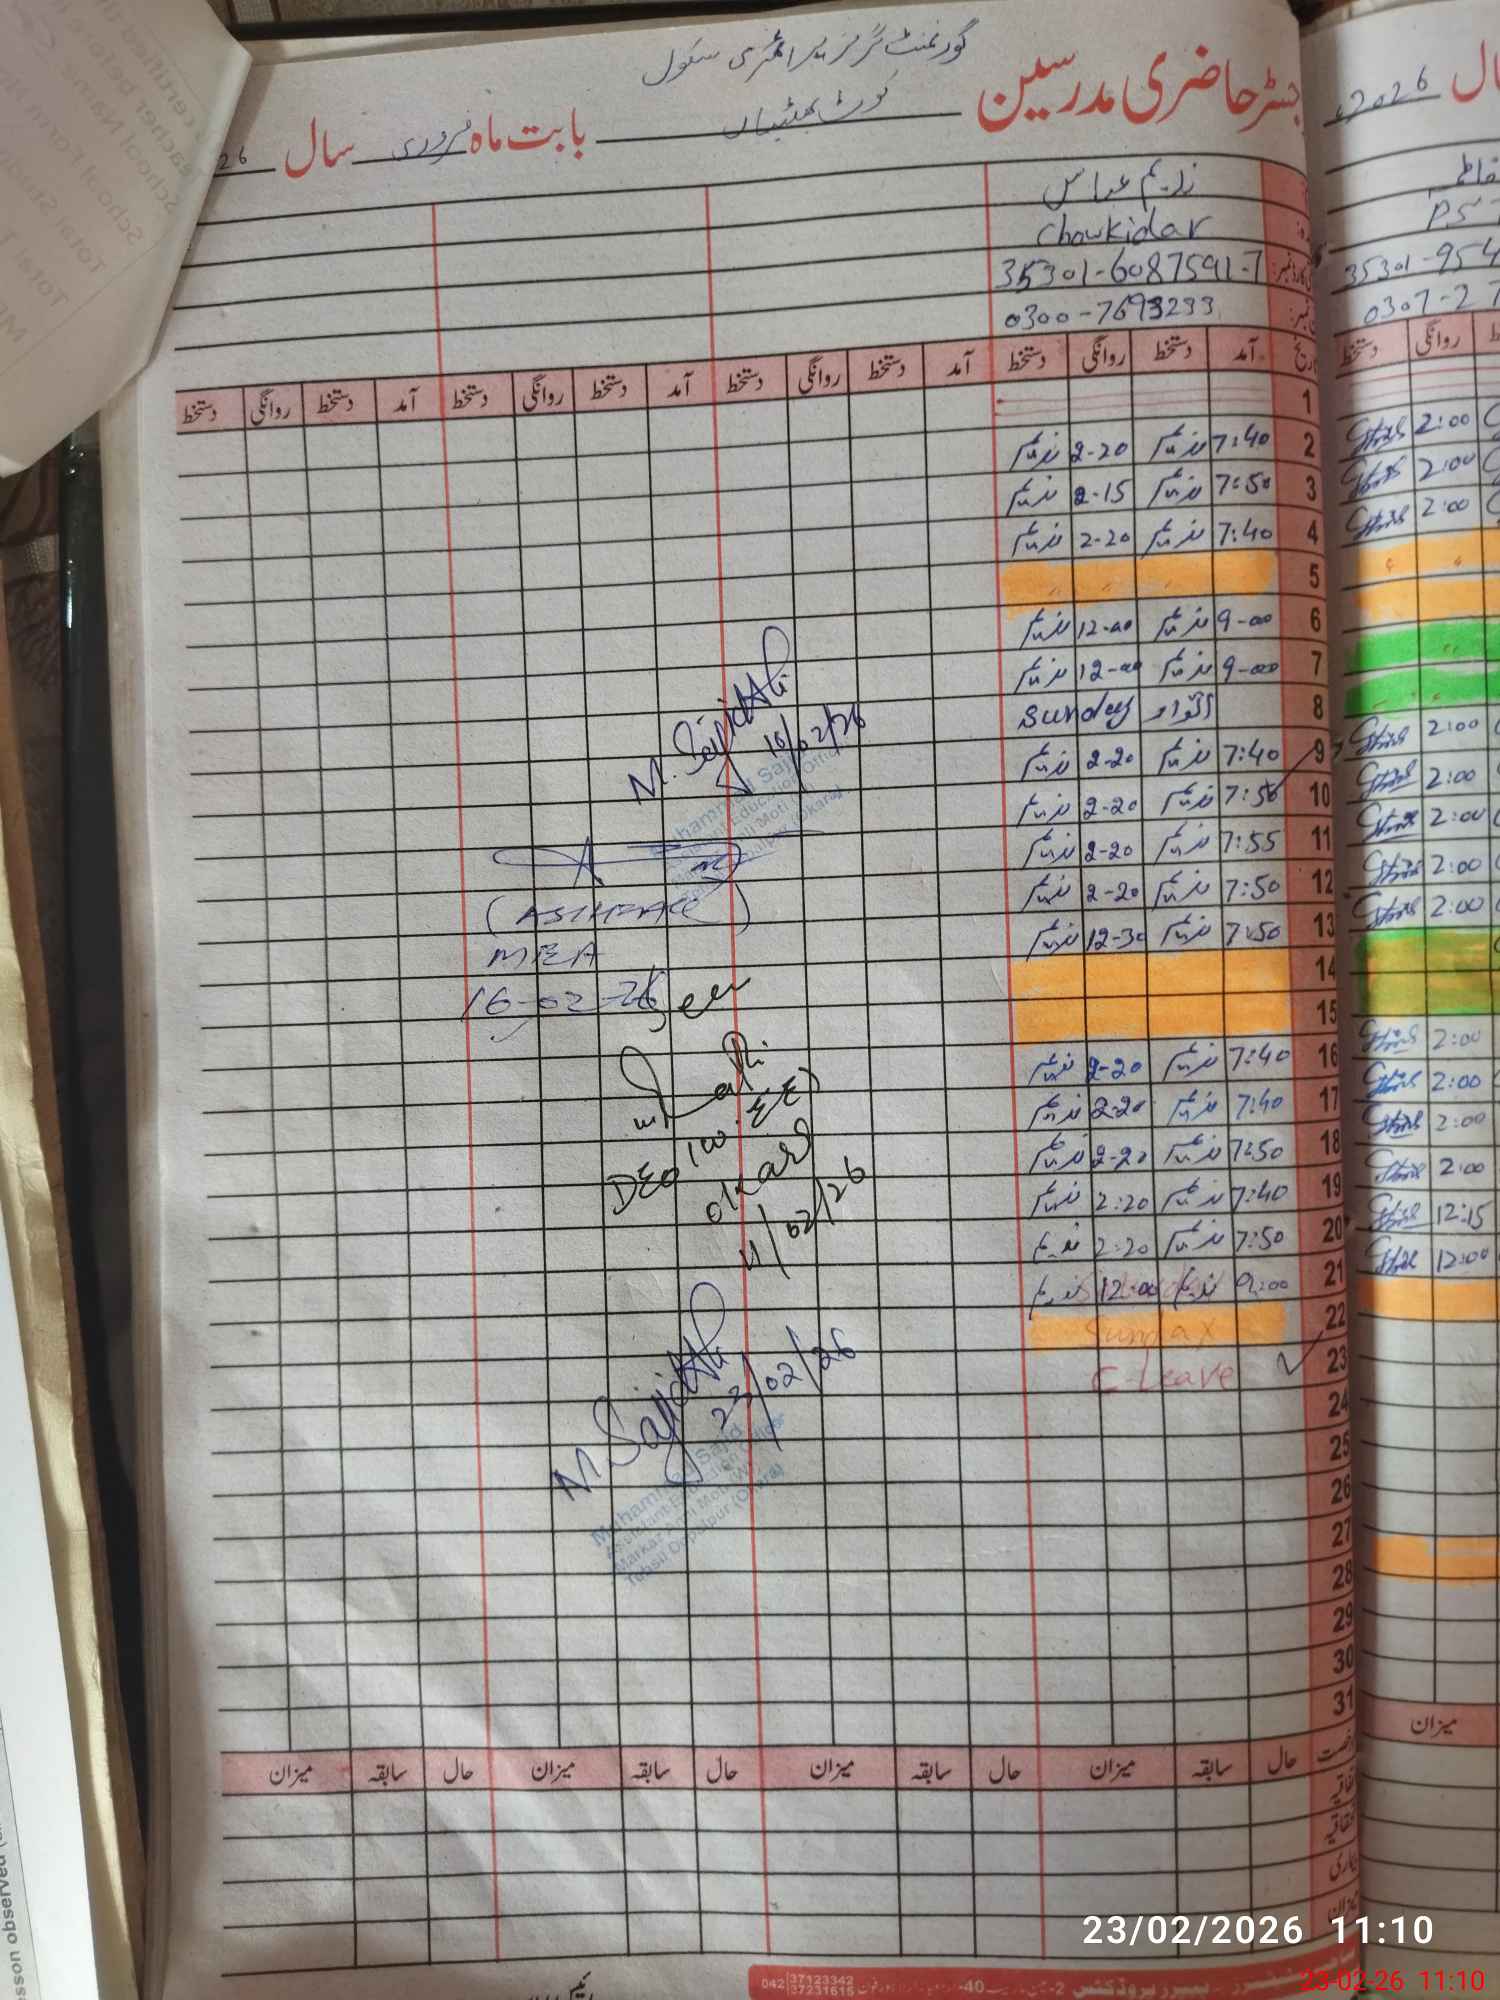 گورنمنٹ گرلز پرائمری سکول
رجسٹر حاضری مدرسین کوٹ بھٹیاں بابت ماہ فروری سال 26
2026 سال
ندیم عباس
Chowkidar
35301-6087591-7
0300-7693233
35301-954
0307-27
آمد دستخط روانگی دستخط آمد دستخط روانگی دستخط آمد دستخط روانگی دستخط آمد دستخط روانگی دستخط
روانگی دستخط
1
2 7:40 ندیم 2-20 ندیم
3 7:50 ندیم 2-15 ندیم
4 7:40 ندیم 2-20 ندیم
5
6 9-00 ندیم 12-00 ندیم
7 9-00 ندیم 12-00 ندیم
8 اتوار Sunday
9 7:40 ندیم 2-20 ندیم
10 7:50 ندیم 2-20 ندیم
11 7:55 ندیم 2-20 ندیم
12 7:50 ندیم 2-20 ندیم
13 7:50 ندیم 12-30 ندیم
14
15
16 7:40 ندیم 2-20 ندیم
17 7:40 ندیم 2-20 ندیم
18 7:50 ندیم 2-20 ندیم
19 7:40 ندیم 2:20 ندیم
20 7:50 ندیم 2:20 ندیم
21 9:00 ندیم 12:00 ندیم
22 Sunday
23 C-Leave
24
25
26
27
28
29
30
31
2:00
2:00
2:00
2:00
2:00
2:00
2:00
2:00
2:00
2:00
2:00
2:00
12:15
12:00
M. Sajid Ali
10/02/26
MEA
16-02-26
Seen
DEO (W-EE)
Okara
11/02/26
M. Sajid Ali
23/02/26
Muhammad Sajid
Assistant Education Officer
Markaz Moti (W)
Tehsil Depalpur (Okara)
حال سابقہ میزان حال سابقہ میزان حال سابقہ میزان حال سابقہ میزان
میزان
042 37123342
37231615
23/02/2026 11:10
23-02-26 11:10